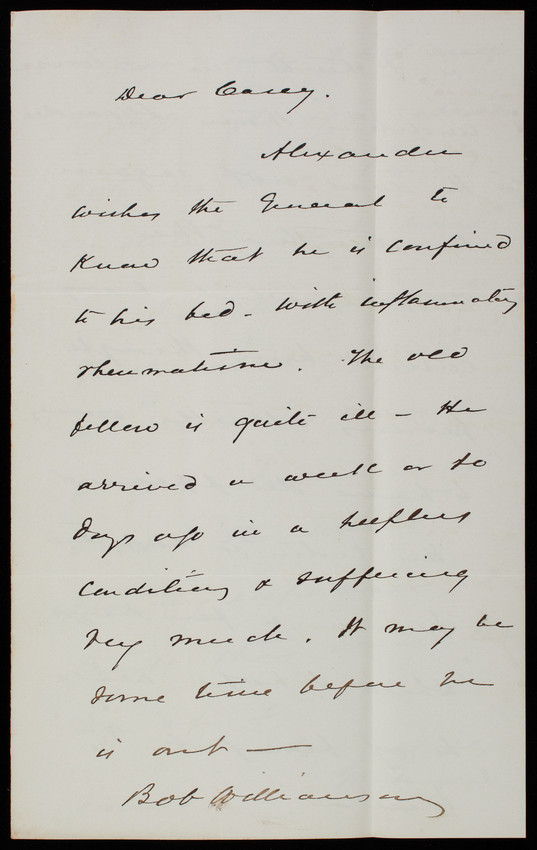 Dear Casey.
Alexander
wishes the General to
know that he is confined
to his bed - with inflammatory
rheumatism. The old
fellow is quite ill - He
arrived a week or so
days ago in a helpless
condition & suffering
very much. It may be
some time before he
is out —
Bob Williamson